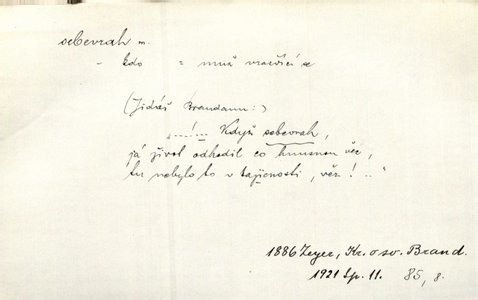 sebevrah m.
- kdo = muž vraždící se
(Jidáš Brandanu:)
„...!... Když sebevrah,
já život odhodil co hnusnou věc,
tu nebylo to v tajnosti, věz! .."
1886 Zeyer, Kr. o sv. Brand.
1921 Sp. 11. 85, 8.